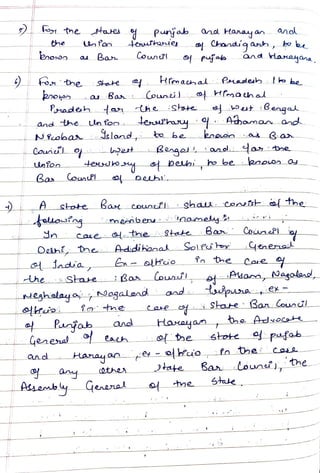 5) For the states of punjab and Harayan and
the Union territories of Chandigarh, to be
known as Bar Council of Punjab and Haranyana.
6) For the state of Himachal Pradesh, to be
known as Bar Council of Himachal
Pradesh for the State of West Bengal
and the Union territory of Adnaman and
Nicobar Island, to be known as Bar
Council of West Bengal, and for the
Union territory of Delhi, to be known as
Bar Council of Delhi.
A state Bar council shall consist of the
following members namely:
In case of the State Bar Council of
Delhi, the Additional Solicitor General
of India, Ex-officio in the case of
the State Bar Council, of Assam, Nagaland,
Meghalaya, Nogalend and Tripura, ex-
officio in the case of State Bar Council
of Punjab and Harayan, the Advocate
General of each of the state of pujab
and Harayan, ex-officio in the case
of any other State Bar Council, the
Assembly General of the State.